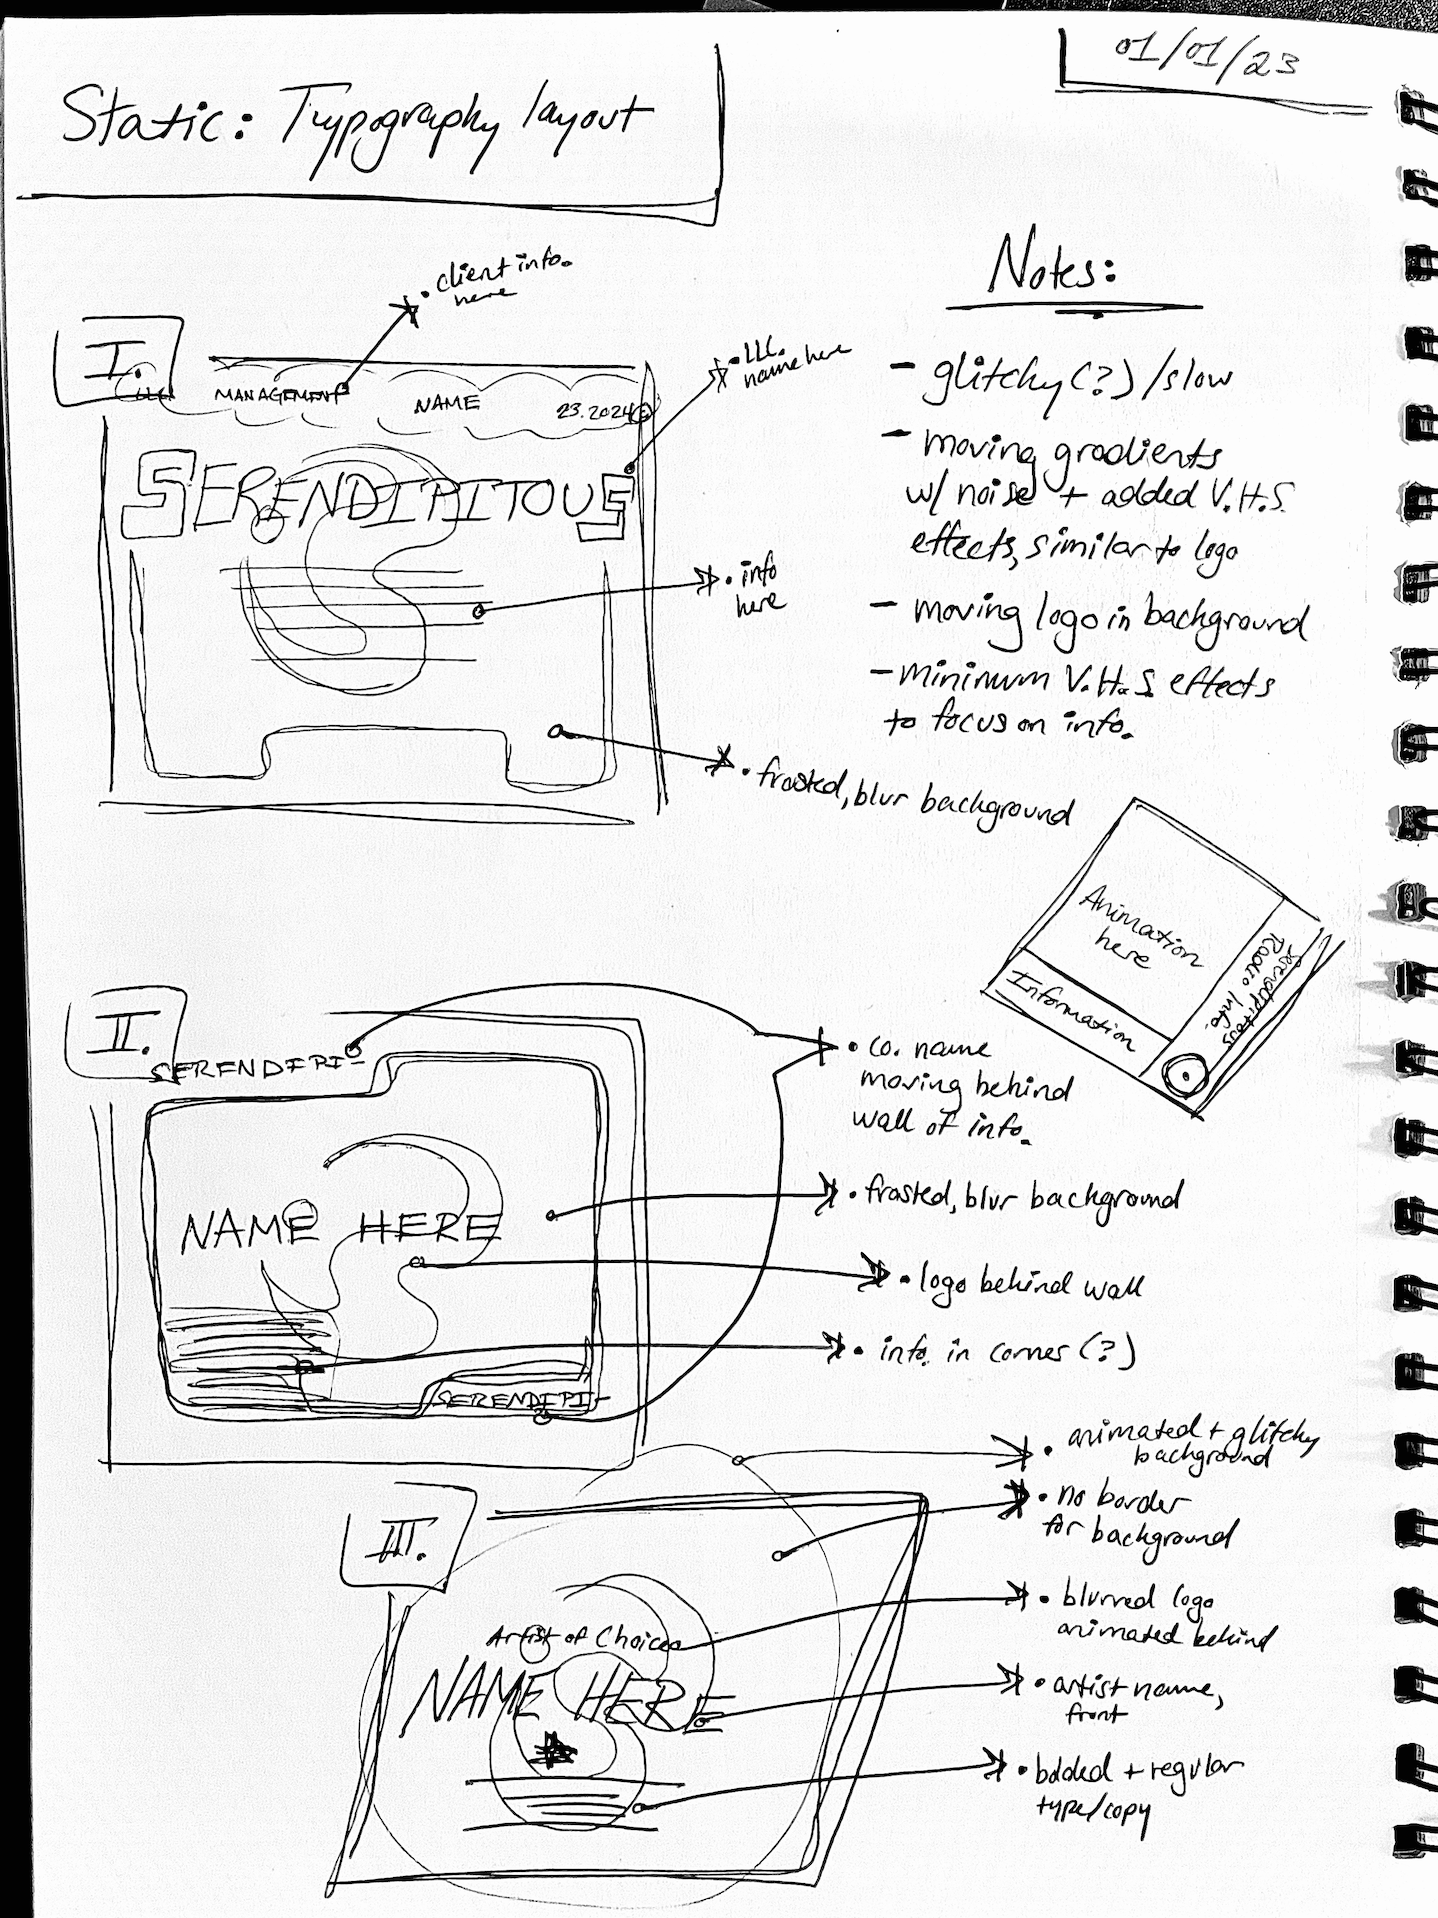 01/01/23
Static: Typography layout
Notes:
- glitchy(?)/slow
- moving gradients
w/ noise + added V.H.S.
effects, similar to logo
- moving logo in background
- minimum V.H.S. effects
to focus on info.
I.
• client info.
here
• LLC.
name here
LLC
MANAGEMENT
NAME
23.2024©
SERENDIPITOUS
• info
here
• frosted, blur background
Animation
here
Information
Serendipitous
Radio Info.
II.
SERENDIPI-
• co. name
moving behind
wall of info.
NAME HERE
• frosted, blur background
• logo behind wall
• info. in corner (?)
SERENDIPI-
III.
• animated + glitchy
background
• no border
for background
• blurred logo
animated behind
Artist of Choice
NAME HERE
• artist name,
front
• bolded + regular
type/copy